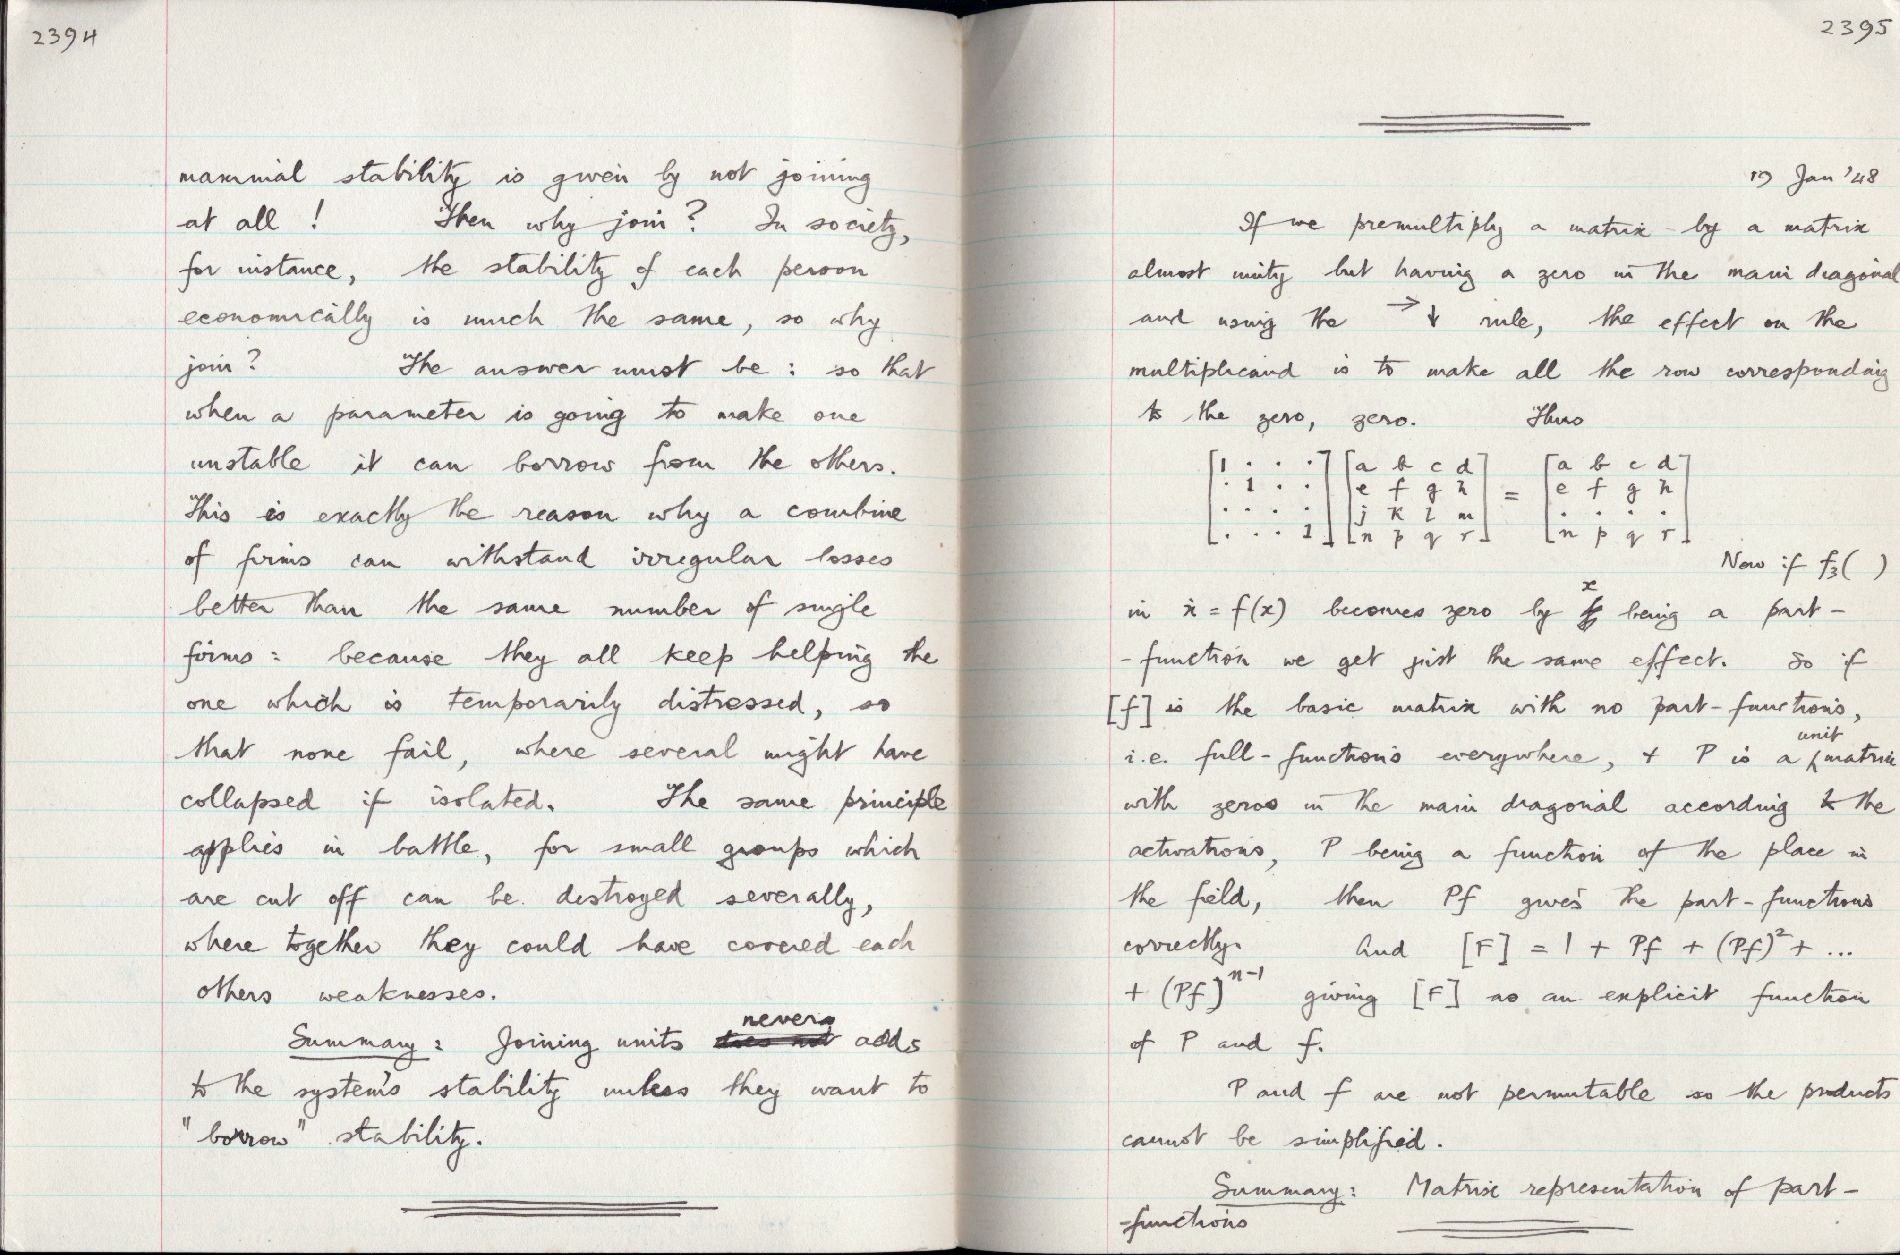 2394
maximal stability is given by not joining
at all ! Then why join? In society,
for instance, the stability of each person
economically is much the same, so why
join? The answer must be : so that
when a parameter is going to make one
unstable it can borrow from the others.
This is exactly the reason why a combine
of firms can withstand irregular losses
better than the same number of single
firms : because they all keep helping the
one which is temporarily distressed, so
that none fail, where several might have
collapsed if isolated. The same principle
applies in battle, for small groups which
are cut off can be destroyed severally,
where together they could have covered each
others weaknesses.
never
Summary : Joining units does not adds
to the system's stability unless they want to
"borrow" stability.
2395
19 Jan '48
If we premultiply a matrix by a matrix
almost unity but having a zero in the main diagonal
and using the → ↓ rule, the effect on the
multiplicand is to make all the row corresponding
to the zero, zero. Thus
[1 · · ·] [a b c d] [a b c d]
[· 1 · ·] [e f g h] = [e f g h]
[· · · ·] [j k l m] [· · · ·]
[· · · 1] [n p q r] [n p q r]
Now if f₃( )
x
in ẋ = f(x) becomes zero by being a part-
-function we get just the same effect. So if
[f] is the basic matrix with no part-functions,
unit
i.e. full-functions everywhere, + P is a matrix
with zeros in the main diagonal according to the
activations, P being a function of the place in
the field, then Pf gives the part-functions
correctly. And [F] = 1 + Pf + (Pf)² + ...
+ (Pf)ⁿ⁻¹ giving [F] as an explicit function
of P and f.
P and f are not permutable so the products
cannot be simplified.
Summary : Matrix representation of part-
-functions